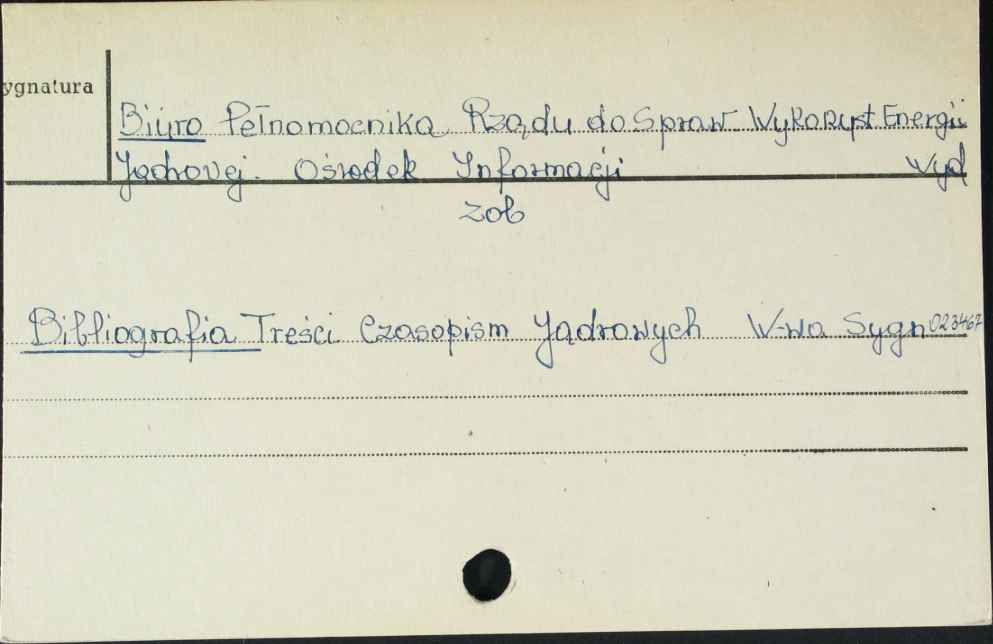 ygnatura
Biuro Pełnomocnika Rządu do Spraw Wykorzyst Energii
Jądrowej. Ośrodek Informacji wyd
zob
Bibliografia Treści Czasopism Jądrowych W-wa Sygn 023467